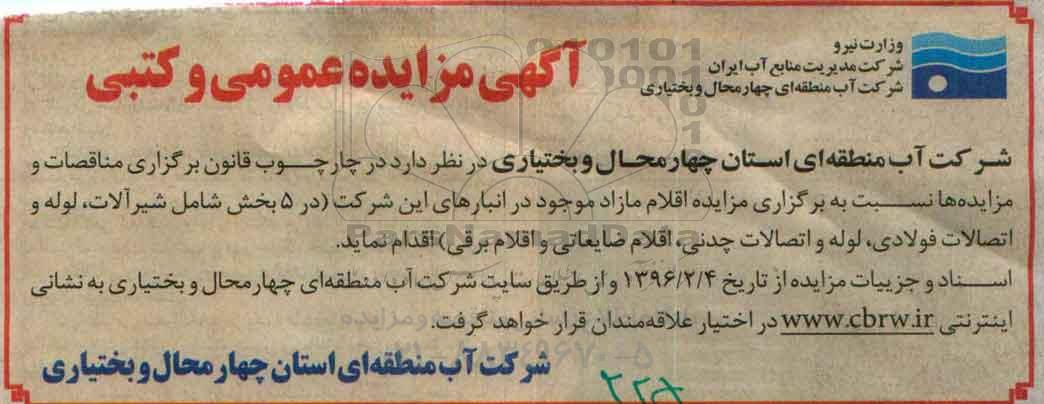 وزارت نیرو
شرکت مدیریت منابع آب ایران
شرکت آب منطقه‌ای چهارمحال و بختیاری
آگهی مزایده عمومی و کتبی
شرکت آب منطقه‌ای استان چهارمحال و بختیاری در نظر دارد در چارچوب قانون برگزاری مناقصات و
مزایده‌ها نسبت به برگزاری مزایده اقلام مازاد موجود در انبارهای این شرکت (در ۵ بخش شامل شیرآلات، لوله و
اتصالات فولادی، لوله و اتصالات چدنی، اقلام ضایعاتی و اقلام برقی) اقدام نماید.
اسناد و جزییات مزایده از تاریخ ۱۳۹۶/۲/۴ و از طریق سایت شرکت آب منطقه‌ای چهارمحال و بختیاری به نشانی
اینترنتی www.cbrw.ir در اختیار علاقه‌مندان قرار خواهد گرفت.
شرکت آب منطقه‌ای استان چهارمحال و بختیاری